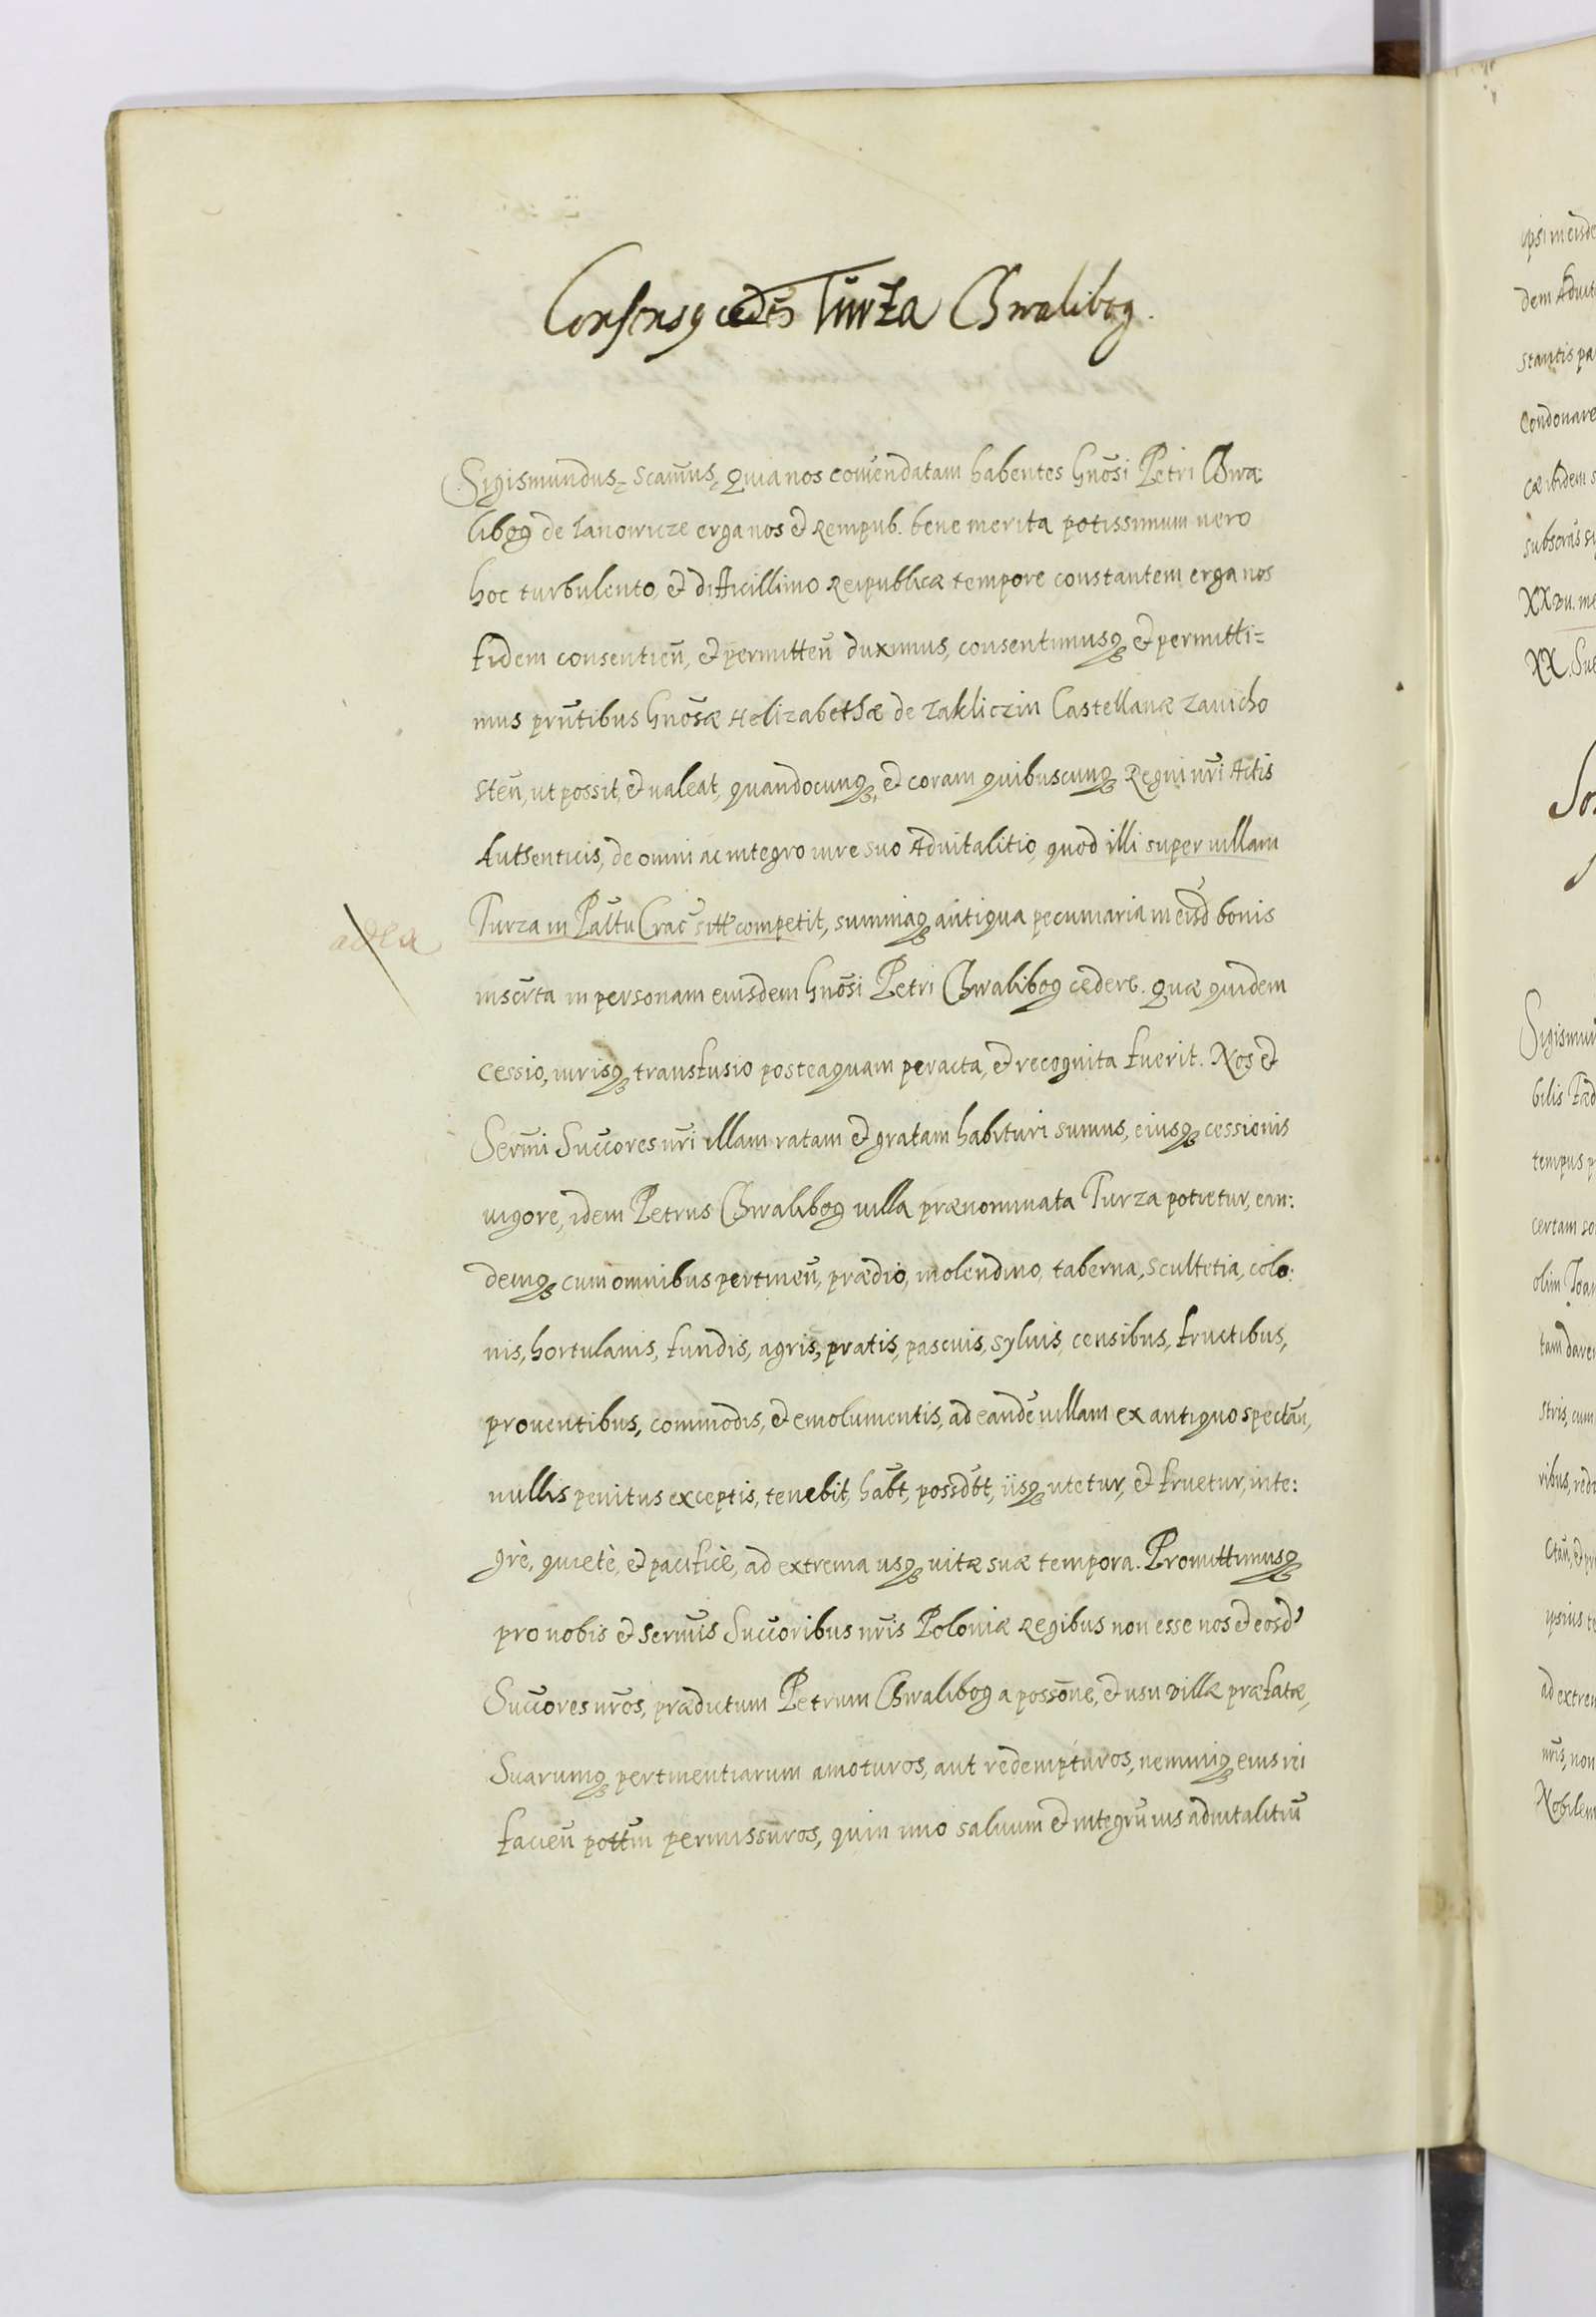 Consensq cedēs Turza Chwalibog.
Sigismundus, Scimus, Quia nos com̄endatam habentes Gnōsi Petri Chwa:
libog de Ianowicze erga nos et Rempub. bene merita potissimum vero
hoc turbulento, et difficillimo Reipublicæ tempore constantem erga nos
fidem consentien̄, et permitten̄ duximus, consentimusq et permitti=
mus prn̄tibus Gnōsæ Helizabethæ de Zakliczin Castellanæ Zavicho
sten̄, ut possit, et valeat, quandocunq, et coram quibuscunq Regni nr̄i Actis
Authenticis, de omni ac integro iure suo Advitalitio, quod illi super villam
adla
Turza in Pāltu Crac̄ sitt competit, summaq antiqua pecuniaria in eisd bonis
inscr̄ta in personam eiusdem Gnōsi Petri Chwalibog cedere. Quæ quidem
cessio, iurisq transfusio posteaquam peracta, et recognita fuerit. Nos et
Serm̄i Succores nr̄i illam ratam et gratam habituri sumus, eiusq cessionis
vigore, idem Petrus Chwalibog villa prænominata Turza potietur, ean:
demq cum omnibus pertinen̄, prædio, molendino, taberna, scultetia, colo:
nis, hortulanis, fundis, agris, pratis, pascuis, sylvis, censibus, fructibus,
proventibus, commodis, et emolumentis, ad eandē villam ex antiquo spectān,
nullis penitus exceptis, tenebit, hab̄t, possdb̄t, iisq utetur, et fruetur, inte:
grè, quietè, et pacificè, ad extrema usq vitæ suæ tempora. Promittimusq
pro nobis et serm̄is Succoribus nr̄is Poloniæ Regibus non esse nos et eosd
Succores nr̄os, prædictum Petrum Chwalibog a possōne, et usu villæ præfatæ,
Suarumq pertinentiarum amoturos, aut redempturos, neminiq eius rei
facien̄ pott̄m permissuros, quin imo salvum et integrū ius advitalitiū